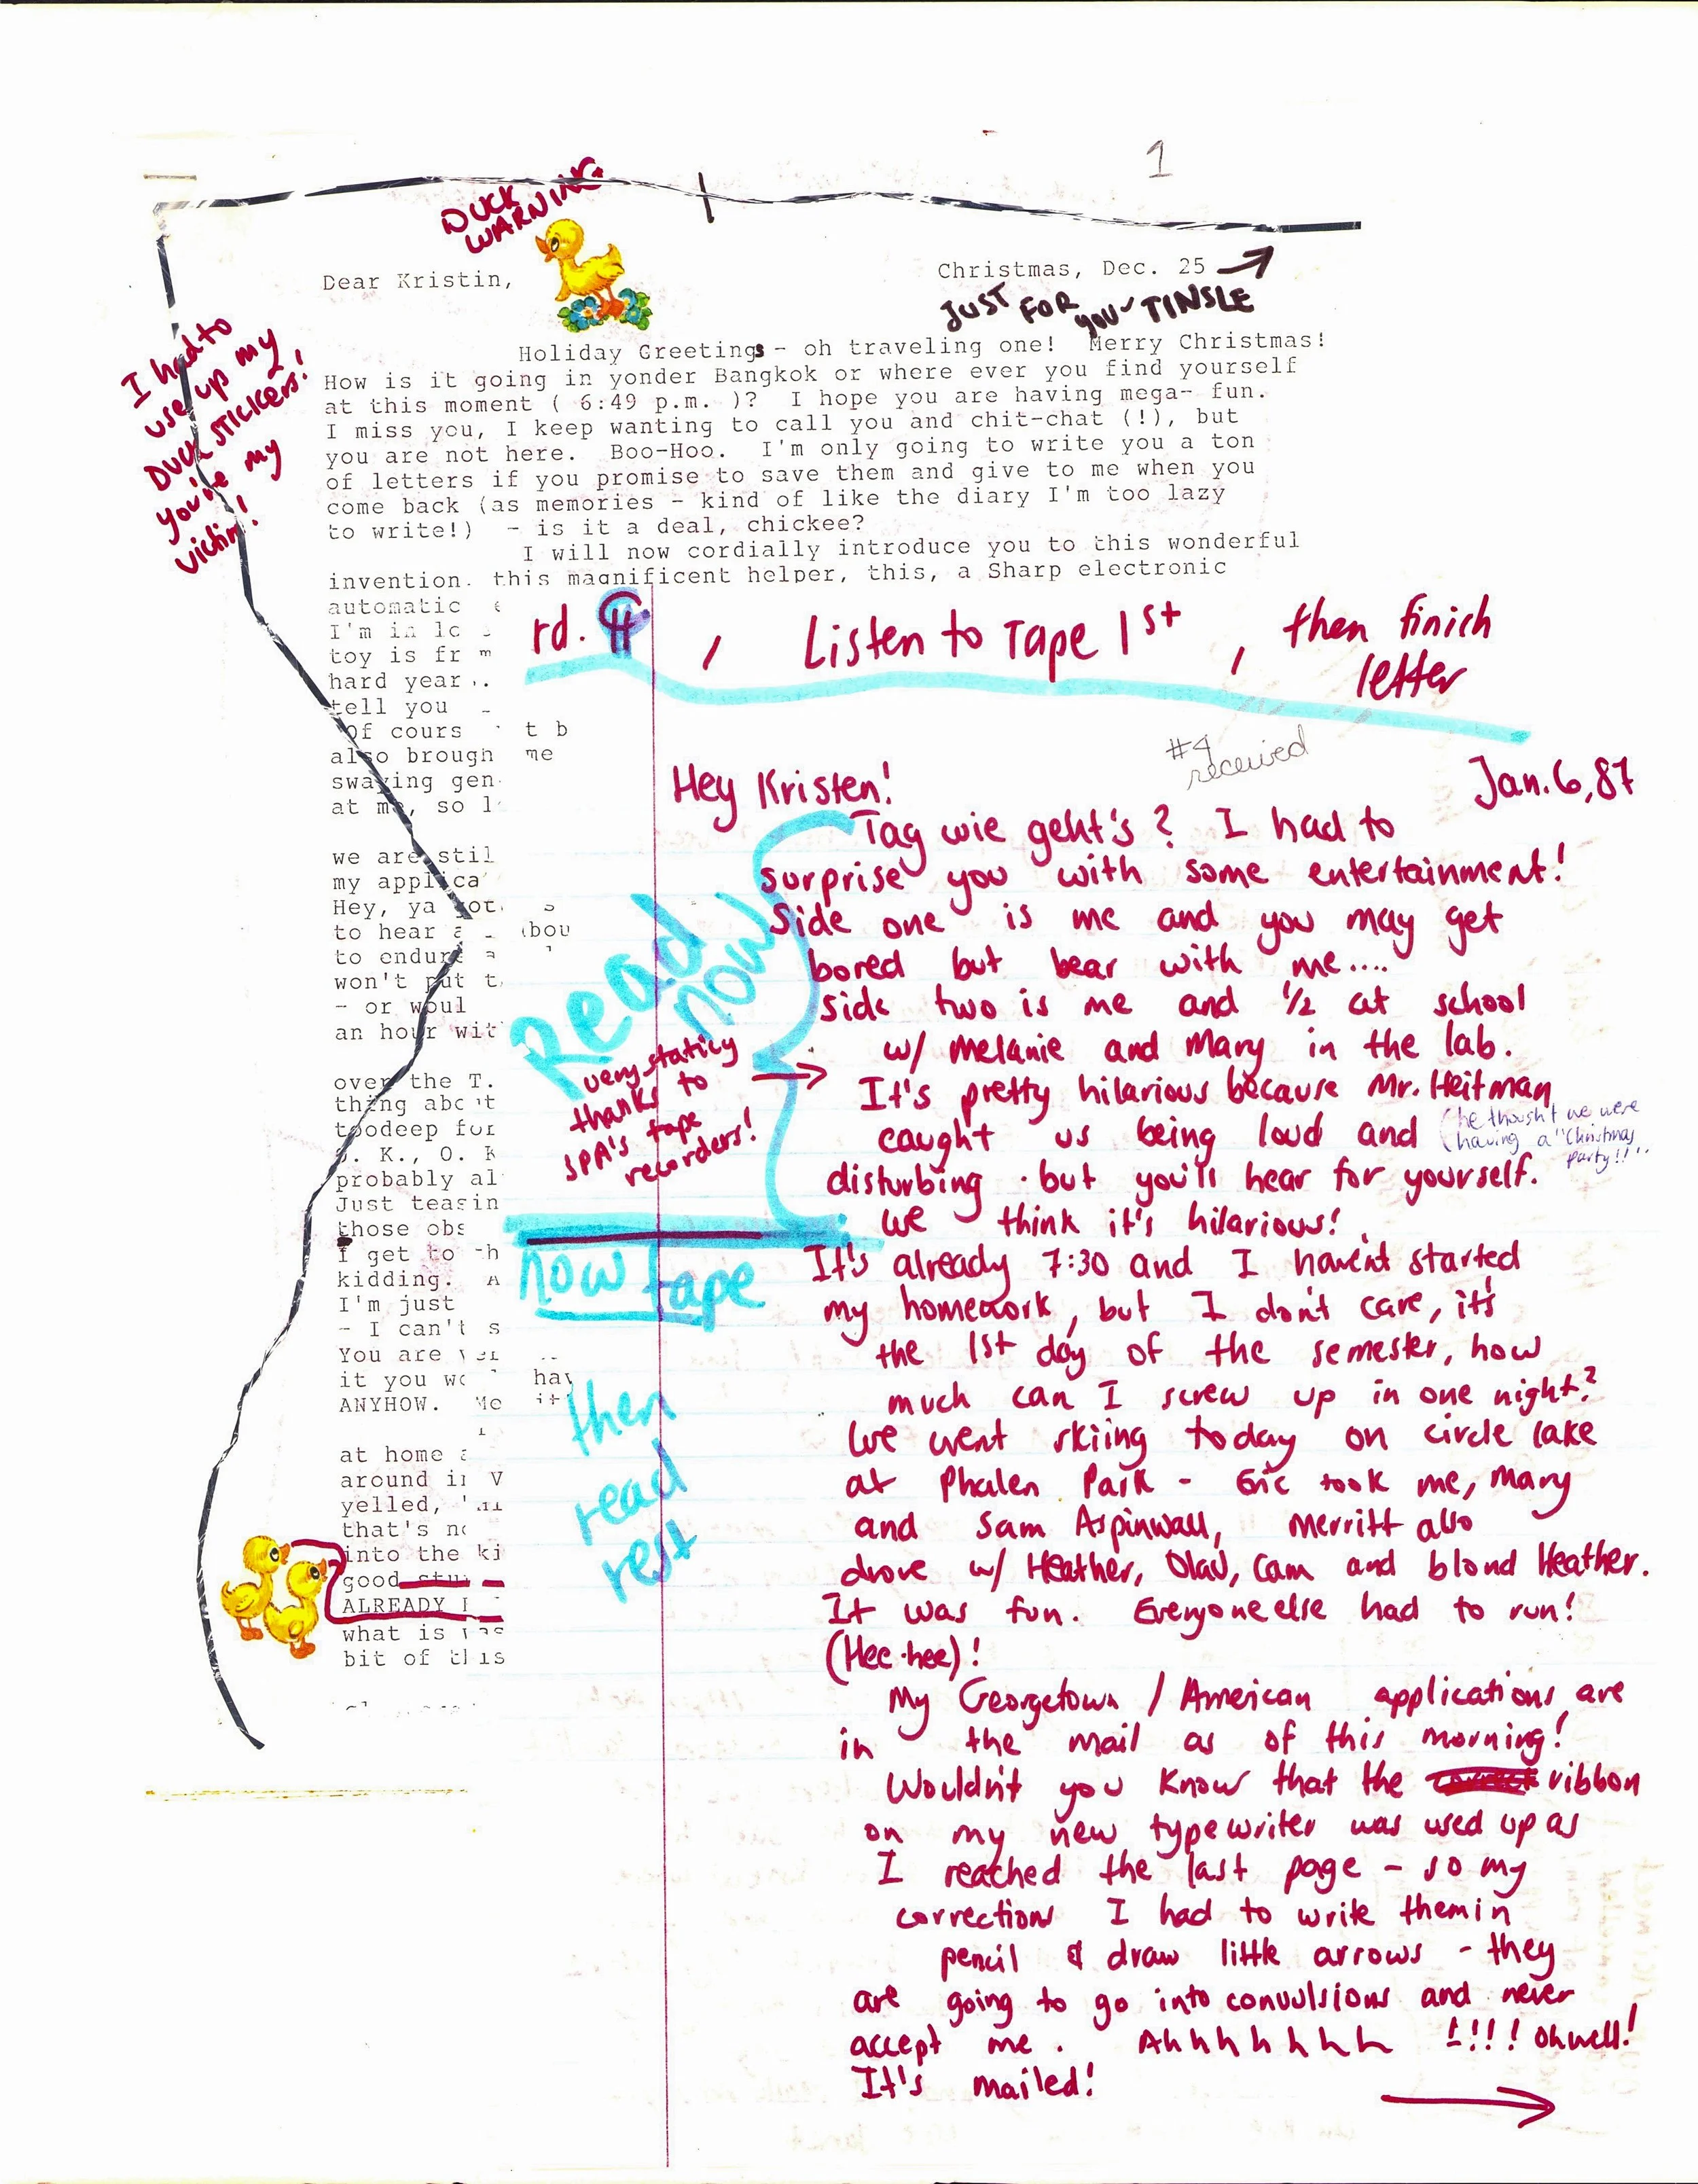 1
DUCK
WARNING
Dear Kristin,
Christmas, Dec. 25
JUST FOR you TINSLE
I had to
use up my
DUCK STICKERS!
you're my
victim!
Holiday Greetings - oh traveling one!  Merry Christmas!
How is it going in yonder Bangkok or where ever you find yourself
at this moment ( 6:49 p.m. )?  I hope you are having mega- fun.
I miss you, I keep wanting to call you and chit-chat (!), but
you are not here.  Boo-Hoo.  I'm only going to write you a ton
of letters if you promise to save them and give to me when you
come back (as memories - kind of like the diary I'm too lazy
to write!)  - is it a deal, chickee?
I will now cordially introduce you to this wonderful
invention. this magnificent helper, this, a Sharp electronic
automatic
I'm in
toy is
hard year
tell you
Of cours
also brough me
swaying gen
at me, so
we are stil
my applica
Hey, ya
to hear
to endure
won't put
- or woul
an hour wit
over the T.
thing
toodeep for
O. K., O. K
probably al
Just teasin
those obs
I get to
kidding.
I'm just
- I can't s
You are
it you
ANYHOW.
at home
around
yelled,
that's
into the ki
good
ALREADY
what is
bit of this
rd. 4, Listen to Tape 1st, then finich
letter
#4
received
Hey Kristen!
Jan. 6, 87
Tag wie geht's? I had to
surprise you with some entertainment!
Side one is me and you may get
bored but bear with me....
side two is me and 1/2 at school
w/ Melanie and Mary in the lab.
It's pretty hilarious because Mr. Heitman
caught us being loud and
(he thought we were
having a "Christmas
party!!"
disturbing - but you'll hear for yourself.
we think it's hilarious!
Read
now
very staticy
thanks to
SPA's tape
recorders!
now tape
then
read
rest
It's already 7:30 and I havent started
my homework, but I don't care, it's
the 1st day of the semester, how
much can I screw up in one night?
We went skiing today on circle lake
at Phalen Park - Eric took me, Mary
and Sam Aspinwall, Merritt also
drove w/ Heather, Olav, Cam and blond Heather.
It was fun. Everyone else had to run!
(Hee-hee)!
My Georgetown / American applications are
in the mail as of this morning!
Wouldn't you know that the ribbon
on my new typewriter was used up as
I reached the last page - so my
corrections I had to write them in
pencil & draw little arrows - they
are going to go into convulsions and never
accept me. Ahhhhhhh !!!! Oh well!
It's mailed!